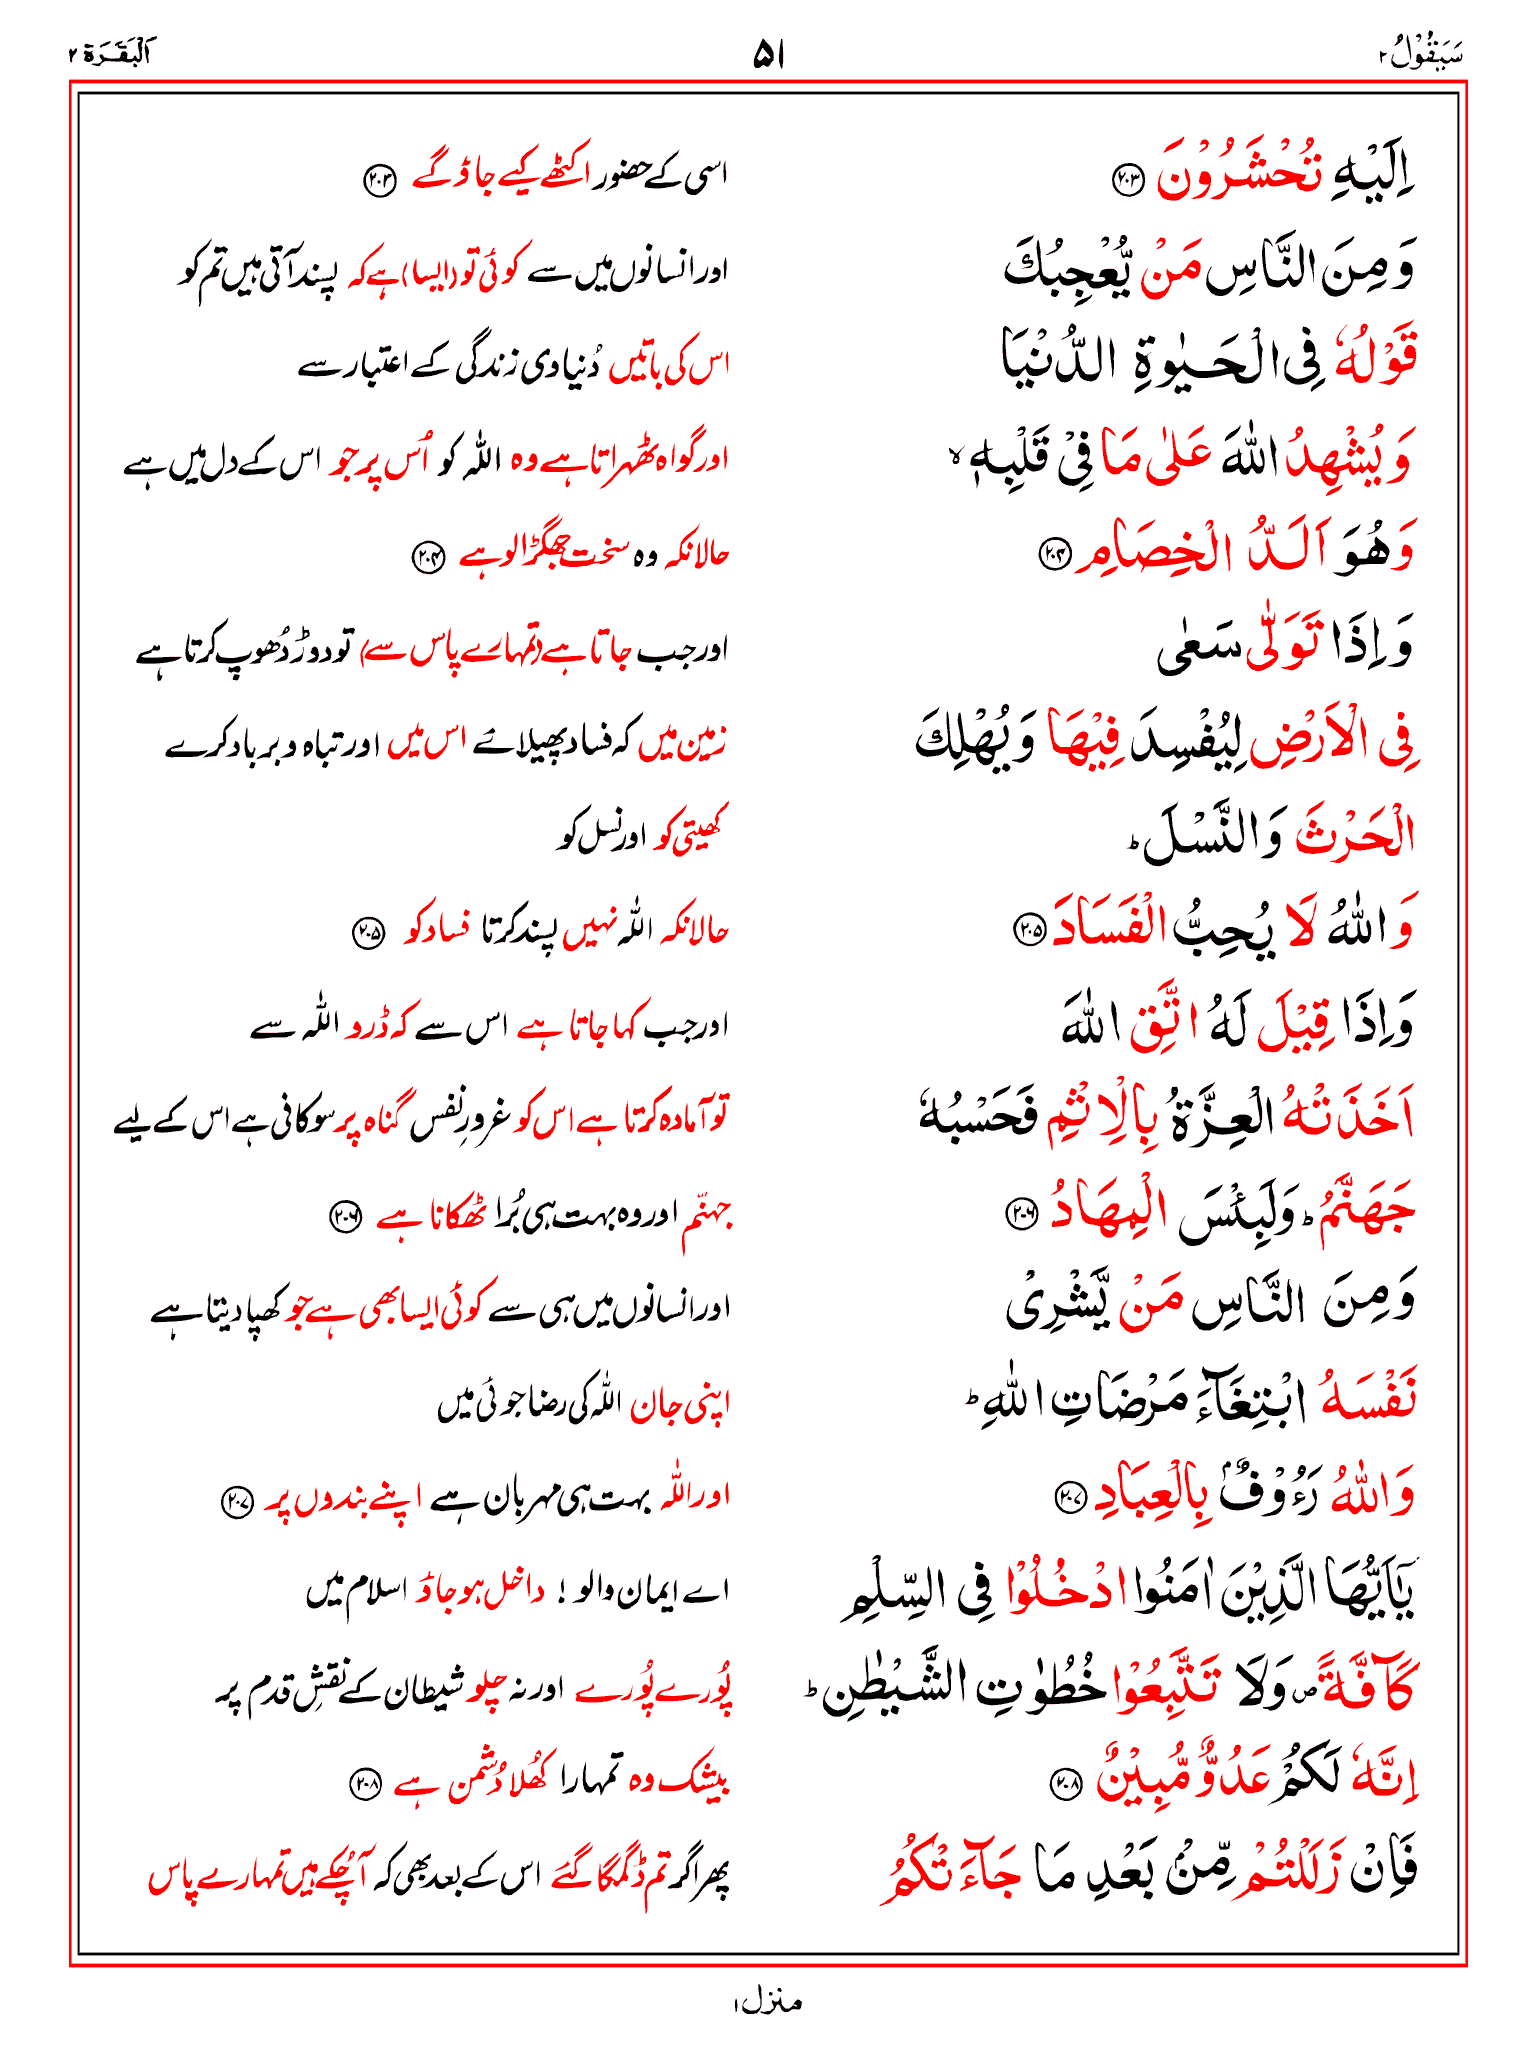 سَيَقُوْلُ ٢ ۵۱ اَلْبَقَرَة ٢
اِلَيْهِ تُحْشَرُوْنَ ٢٠٣ اسی کے حضور اکٹھے کیے جاؤ گے ٢٠٣
وَ مِنَ النَّاسِ مَنْ يُّعْجِبُكَ اور انسانوں میں سے کوئی تو (ایسا) ہے کہ پسند آتی ہیں تم کو
قَوْلُهٗ فِى الْحَيٰوةِ الدُّنْيَا اس کی باتیں دُنیاوی زندگی کے اعتبار سے
وَ يُشْهِدُ اللّٰهَ عَلٰى مَا فِىْ قَلْبِهٖ ۙ اور گواہ ٹھہراتا ہے وہ اللّٰہ کو اُس پر جو اس کے دل میں ہے
وَ هُوَ اَلَدُّ الْخِصَامِ ٢٠۴ حالانکہ وہ سخت جھگڑالو ہے ٢٠۴
وَ اِذَا تَوَلّٰى سَعٰى اور جب جاتا ہے (تمہارے پاس سے) تو دوڑ دُھوپ کرتا ہے
فِى الْاَرْضِ لِيُفْسِدَ فِيْهَا وَ يُهْلِكَ زمین میں کہ فساد پھیلائے اس میں اور تباہ و برباد کرے
الْحَرْثَ وَ النَّسْلَ ؕ کھیتی کو اور نسل کو
وَ اللّٰهُ لَا يُحِبُّ الْفَسَادَ ٢٠۵ حالانکہ اللّٰہ نہیں پسند کرتا فساد کو ٢٠۵
وَ اِذَا قِيْلَ لَهُ اتَّقِ اللّٰهَ اور جب کہا جاتا ہے اس سے کہ ڈرو اللّٰہ سے
اَخَذَتْهُ الْعِزَّةُ بِالْاِثْمِ فَحَسْبُهٗ تو آمادہ کرتا ہے اس کو غرورِ نفس گناہ پر سو کافی ہے اس کے لیے
جَهَنَّمُ ؕ وَ لَبِئْسَ الْمِهَادُ ٢٠۶ جہنّم اور وہ بہت ہی بُرا ٹھکانا ہے ٢٠۶
وَ مِنَ النَّاسِ مَنْ يَّشْرِىْ اور انسانوں میں ہی سے کوئی ایسا بھی ہے جو کھپا دیتا ہے
نَفْسَهُ ابْتِغَآءَ مَرْضَاتِ اللّٰهِ ؕ اپنی جان اللّٰہ کی رضا جوئی میں
وَ اللّٰهُ رَءُوْفٌۢ بِالْعِبَادِ ٢٠٧ اور اللّٰہ بہت ہی مہربان ہے اپنے بندوں پر ٢٠٧
يٰۤاَيُّهَا الَّذِيْنَ اٰمَنُوا ادْخُلُوْا فِى السِّلْمِ اے ایمان والو ! داخل ہو جاؤ اسلام میں
كَآفَّةً ۪ وَ لَا تَتَّبِعُوْا خُطُوٰتِ الشَّيْطٰنِ ؕ پُورے پُورے اور نہ چلو شیطان کے نقشِ قدم پر
اِنَّهٗ لَكُمْ عَدُوٌّ مُّبِيْنٌ ٢٠٨ بیشک وہ تمہارا کُھلا دُشمن ہے ٢٠٨
فَاِنْ زَلَلْتُمْ مِّنْۢ بَعْدِ مَا جَآءَتْكُمُ پھر اگر تم ڈگمگا گئے اس کے بعد بھی کہ آ چُکے ہیں تمہارے پاس
منزل ١